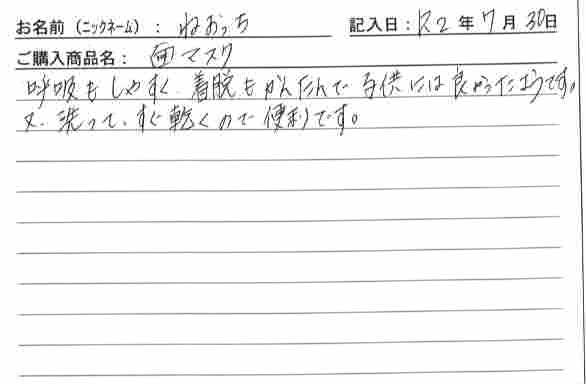 お名前（ニックネーム）： ねおっち 記入日：R2年7月30日
ご購入商品名： 面マスク
呼吸もしやすく、着脱もかんたんで子供には良かったようです。
又、洗って、すぐ乾くので便利です。